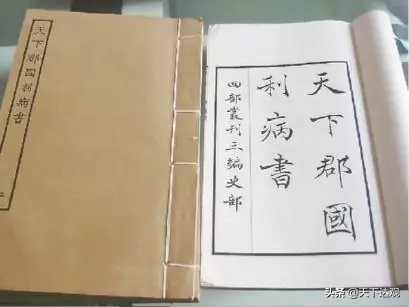 天下郡国利病书
天下郡國
利病書
四部叢刊三編史部
头条 @天下达观